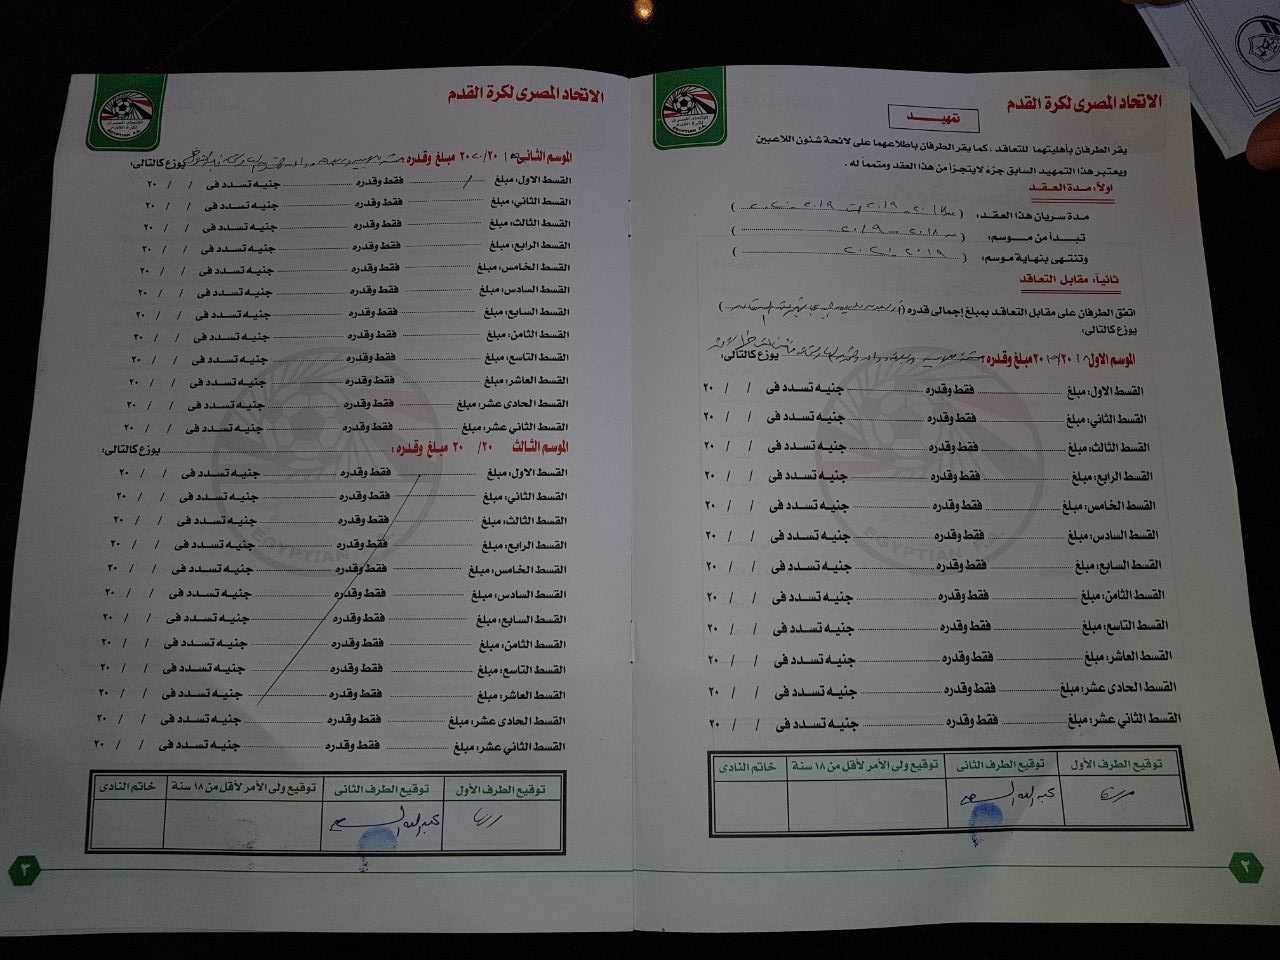 الاتحاد المصرى لكرة القدم
تمهيد
يقر الطرفان بأهليتهما للتعاقد ، كما يقر الطرفان باطلاعهما على لائحة شئون اللاعبين
ويعتبر هذا التمهيد السابق جزء لايتجزأ من هذا العقد ومتمماً له .
اولاً: مدة العقد
مدة سريان هذا العقد: ( ٢٠١٨ - ٢٠١٩ ٢٠١٩ - ٢٠٢٠ )
تبدأ من موسم: ( ٢٠١٨ - ٢٠١٩ )
وتنتهى بنهاية موسم: ( ٢٠١٩ - ٢٠٢٠ )
ثانياً: مقابل التعاقد
اتفق الطرفان على مقابل التعاقد بمبلغ إجمالى قدره ( )
يوزع كالتالى:
الموسم الاول ٢٠١٨/ ٢٠١٩ مبلغ وقدره يوزع كالتالى:
القسط الاول: مبلغ فقط وقدره جنيه تسدد فى / / ٢٠
القسط الثاني: مبلغ فقط وقدره جنيه تسدد فى / / ٢٠
القسط الثالث: مبلغ فقط وقدره جنيه تسدد فى / / ٢٠
القسط الرابع: مبلغ فقط وقدره جنيه تسدد فى / / ٢٠
القسط الخامس: مبلغ فقط وقدره جنيه تسدد فى / / ٢٠
القسط السادس: مبلغ فقط وقدره جنيه تسدد فى / / ٢٠
القسط السابع: مبلغ فقط وقدره جنيه تسدد فى / / ٢٠
القسط الثامن: مبلغ فقط وقدره جنيه تسدد فى / / ٢٠
القسط التاسع: مبلغ فقط وقدره جنيه تسدد فى / / ٢٠
القسط العاشر: مبلغ فقط وقدره جنيه تسدد فى / / ٢٠
القسط الحادى عشر: مبلغ فقط وقدره جنيه تسدد فى / / ٢٠
القسط الثاني عشر: مبلغ فقط وقدره جنيه تسدد فى / / ٢٠
توقيع الطرف الأول توقيع الطرف الثانى توقيع ولى الأمر لأقل من ١٨ سنة خاتم النادى
عبدالله السعيد
٢
الاتحاد المصرى لكرة القدم
الموسم الثانى ٢٠١٩/ ٢٠٢٠ مبلغ وقدره يوزع كالتالى:
القسط الاول: مبلغ فقط وقدره جنيه تسدد فى / / ٢٠
القسط الثاني: مبلغ فقط وقدره جنيه تسدد فى / / ٢٠
القسط الثالث: مبلغ فقط وقدره جنيه تسدد فى / / ٢٠
القسط الرابع: مبلغ فقط وقدره جنيه تسدد فى / / ٢٠
القسط الخامس: مبلغ فقط وقدره جنيه تسدد فى / / ٢٠
القسط السادس: مبلغ فقط وقدره جنيه تسدد فى / / ٢٠
القسط السابع: مبلغ فقط وقدره جنيه تسدد فى / / ٢٠
القسط الثامن: مبلغ فقط وقدره جنيه تسدد فى / / ٢٠
القسط التاسع: مبلغ فقط وقدره جنيه تسدد فى / / ٢٠
القسط العاشر: مبلغ فقط وقدره جنيه تسدد فى / / ٢٠
القسط الحادى عشر: مبلغ فقط وقدره جنيه تسدد فى / / ٢٠
القسط الثاني عشر: مبلغ فقط وقدره جنيه تسدد فى / / ٢٠
الموسم الثالث ٢٠ /٢٠ مبلغ وقدره : يوزع كالتالى:
القسط الاول: مبلغ فقط وقدره جنيه تسدد فى / / ٢٠
القسط الثاني: مبلغ فقط وقدره جنيه تسدد فى / / ٢٠
القسط الثالث: مبلغ فقط وقدره جنيه تسدد فى / / ٢٠
القسط الرابع: مبلغ فقط وقدره جنيه تسدد فى / / ٢٠
القسط الخامس: مبلغ فقط وقدره جنيه تسدد فى / / ٢٠
القسط السادس: مبلغ فقط وقدره جنيه تسدد فى / / ٢٠
القسط السابع: مبلغ فقط وقدره جنيه تسدد فى / / ٢٠
القسط الثامن: مبلغ فقط وقدره جنيه تسدد فى / / ٢٠
القسط التاسع: مبلغ فقط وقدره جنيه تسدد فى / / ٢٠
القسط العاشر: مبلغ فقط وقدره جنيه تسدد فى / / ٢٠
القسط الحادى عشر: مبلغ فقط وقدره جنيه تسدد فى / / ٢٠
القسط الثاني عشر: مبلغ فقط وقدره جنيه تسدد فى / / ٢٠
توقيع الطرف الأول توقيع الطرف الثانى توقيع ولى الأمر لأقل من ١٨ سنة خاتم النادى
عبدالله السعيد
٣